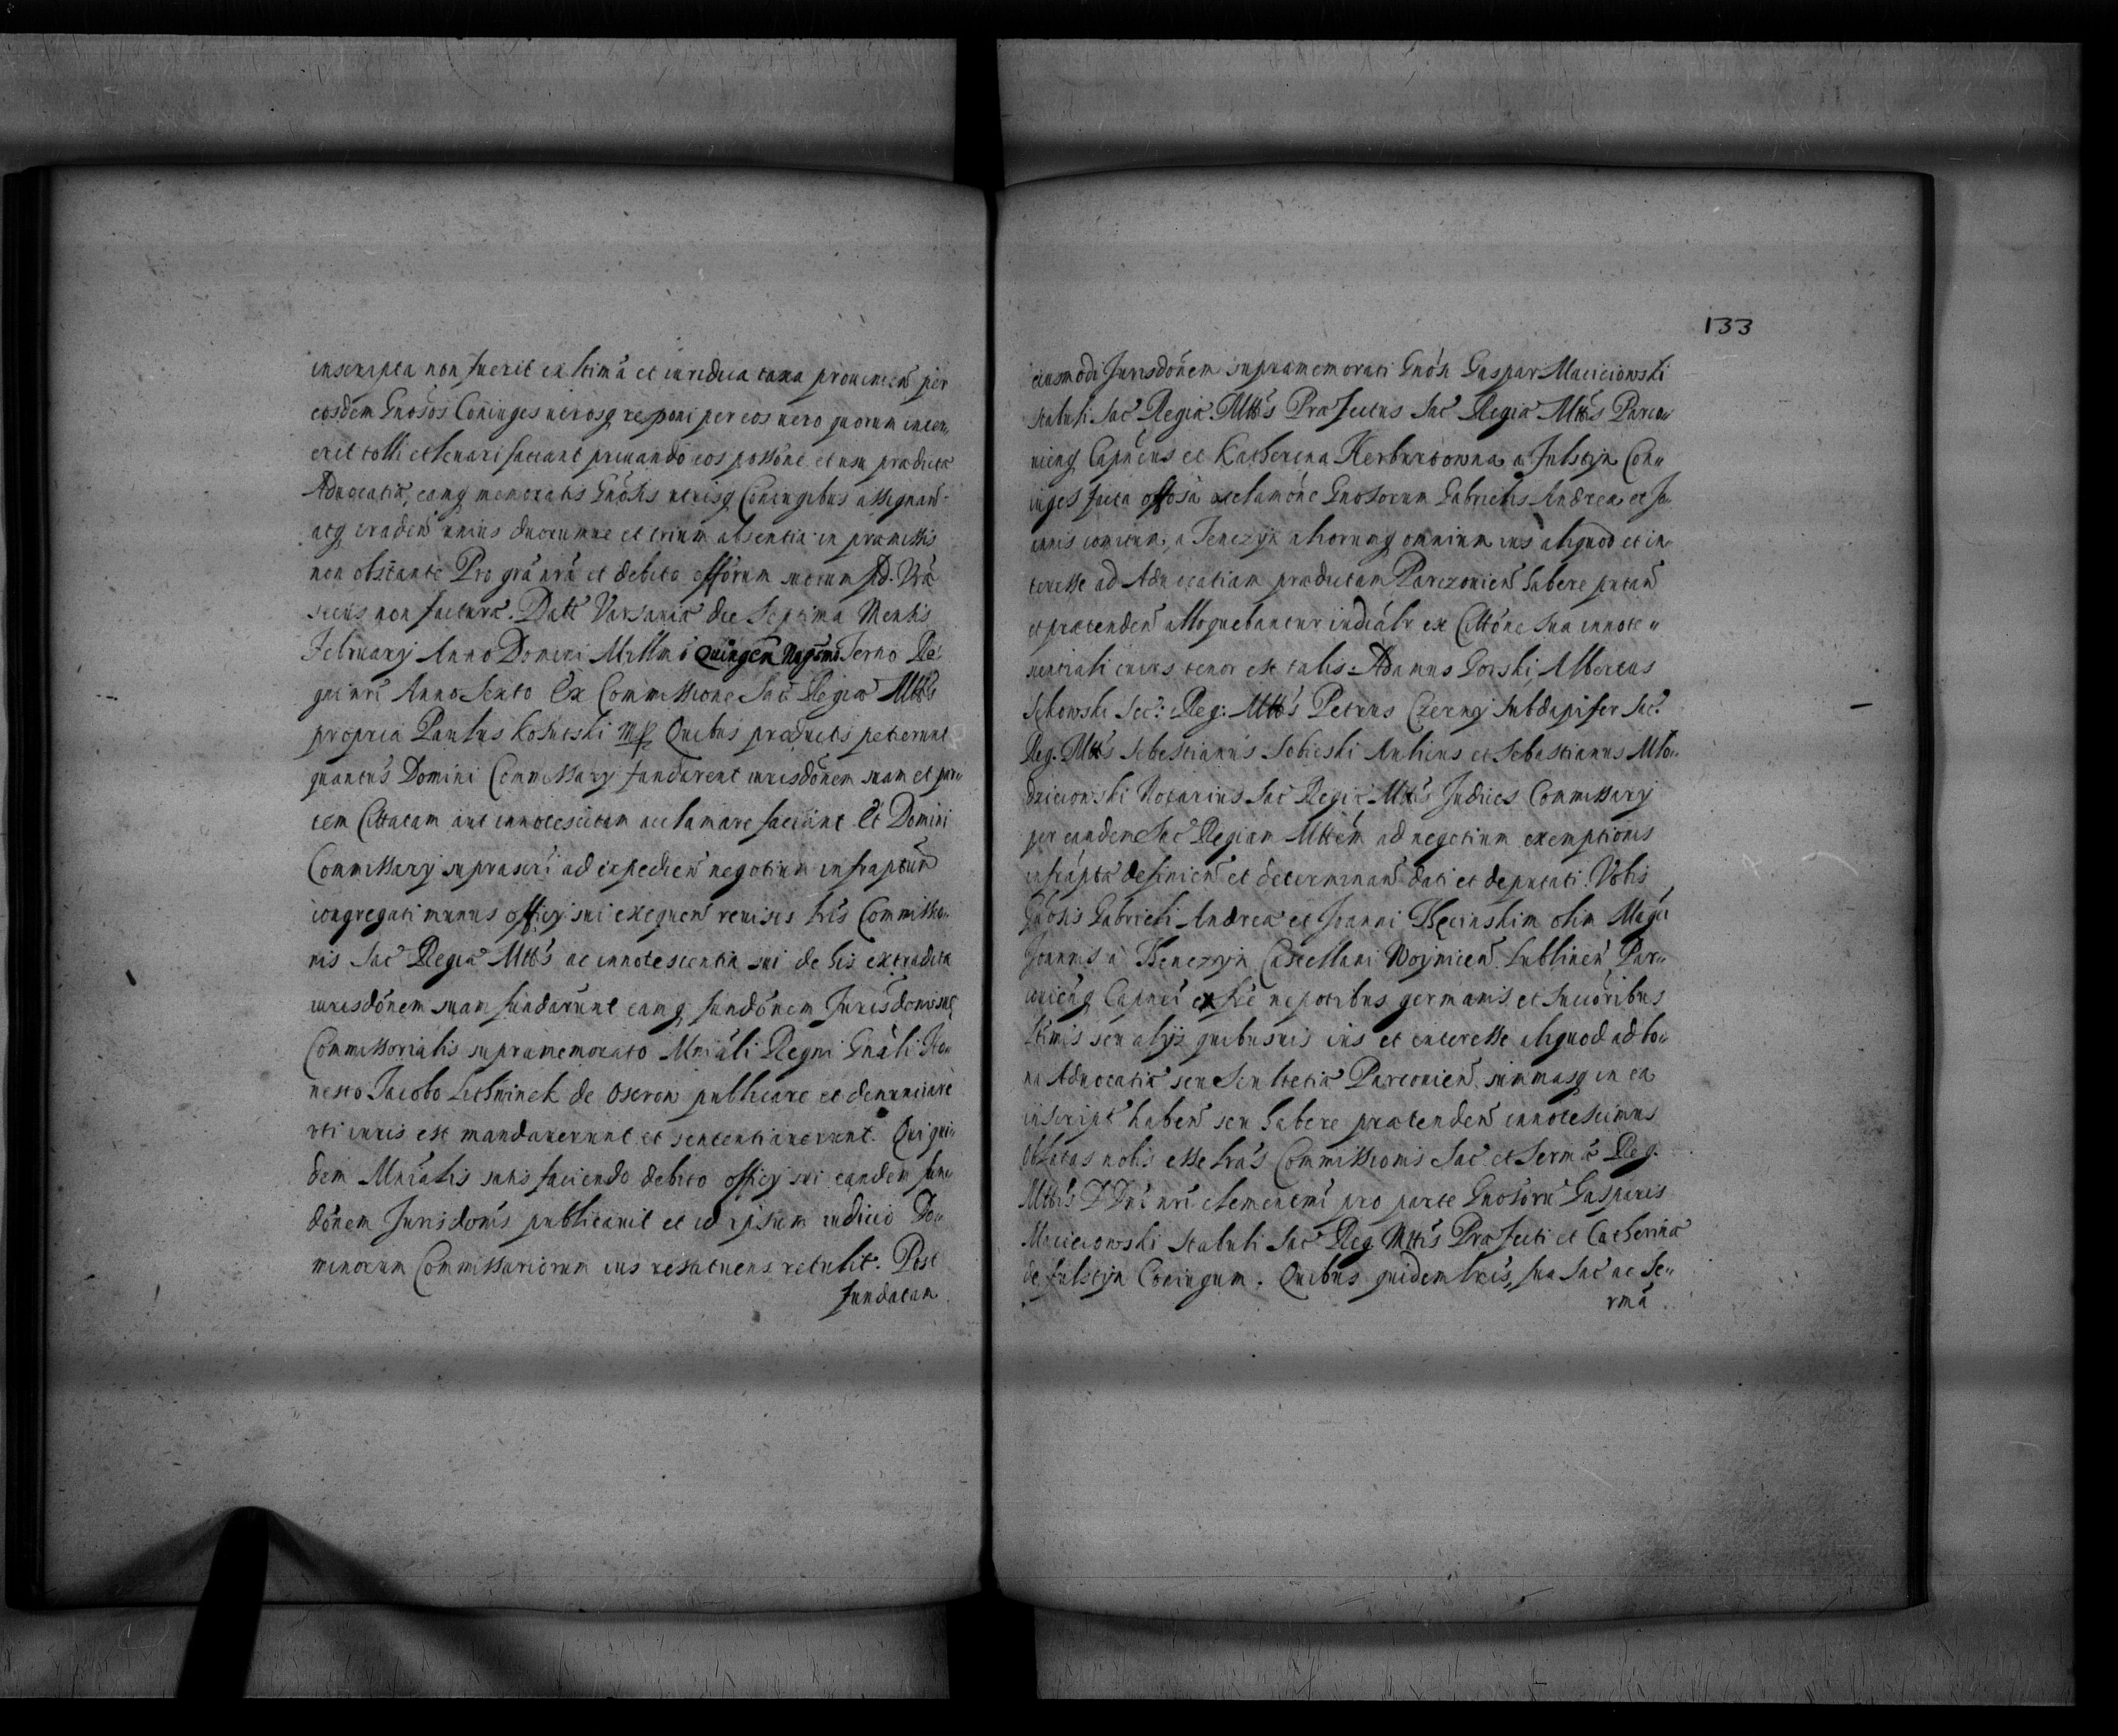 inscripta non fuerit ex ltimã et iuridica taxa provenieñ per
eosdem Gnõsos Coniuges utrosq reponi per eos vero quorum inter„
erit tolli et levari faciant privando eos possõne et usu prædictæ
Advocatiæ, eamq memoratis Gnõsis utrisq Coniugibus assignañ
atq tradeñ unius duorumve et trium absentia in præmissis
non obstante Pro grã nrã et debito offõrum suorum Fid. Vrã
secus non facturæ. Datt Varsaviæ die Septima Mensis
February Anno Domini Millmõ Quingeñ Nagõmo Terno Re„
gni nri Anno Sexto Ex Commissione Sac Regiæ Mttis
propria Paulus Kosutski mp Quibus productis petierunt
quantus Domini Commissary fundarent iurisdõnem suam et par„
tem Cittatam aut innotescitam acclamare faciant Et Domini
Commissary suprascri ad expedieñ negotium infraptum
congregati munus officy sui exequeñ revisis lris Commissio„
nis Sac Regiæ Mttis ac innotescentia sui de his extradita
iurisdõnem suam fundarunt eamq fundõnem Jurisdõnis suæ
Commissorialis supramemorato Mniãli Regni Gnãli Ho„
nesto Jacobo Lithwinek de Ostrow publicare et denunciare
vti iuris est mandaverunt et sententiaverunt. Qui qui„
dem Mniãlis satis faciendo debito officy sui eandem fun„
dõnem Jurisdõnis publicavit et id ipsum iudicio Do„
minorum Commissariorum ius restituens retulit. Post
fundatam
133
eiusmodi Jurisdõnem supramemorati Gnõsi Gaspar Maciciowski
stabuli Sac Regiæ Mttis Præfectus Sac Regiæ Mttis Parco„
vieñq Capñeus et Katherina Herburtowna a Fulstyn Con„
iuges facta offosa acclamõne Gnosorum Gabrielis Andreæ et Jo„
annis comitum a Tenczyn aliorumq omnium ius aliquod et in„
teresse ad Advocatiam prædictam Parczovieñ habere putañ
et prætendeñ alloquebantur iudiãlr ex Cittõne sua innote„
scentiali cuius tenor est talis Adamus Gorski, Albertus
Sękowski Sec: Reg: Mttis Petrus Czerny Subdapifer Sac
Reg. Mttis Sebestianus Sobieski Aulicus et Sebastianus Mło„
dziciowski Notarius Sac Regiæ Mttis Judices Commissary
per eandem Sac Regiam Mttem ad negotium exemptionis
infrãptæ definieñ et determinañ dati et deputati. Vobis
Gnõsis Gabrieli Andreæ et Joanni Thęcinskim olim Magci
Joannis a Thenczyn Castellani Woyniceñ Lublineñ Par„
covieñq Capnei ex fre nepotibus germanis et succõribus
ltimis seu alijs quibusvis ius et interesse aliquod ad bo„
na Advocatiæ seu Scultetiæ Parcovieñ summasq in ea
inscript habeñ seu habere prætendeñ innotescimus
oblatas nobis esse lras Commissionis Sac et Sermæ Reg.
Mttis D Dni nri clementmi pro parte Gnosorũ Gasparis
Maciciowski stabuli Sac Reg Mttis Præfecti et Catherinæ
de Fulstyn Coniugum. Quibus quidem lris, sua Sac ac Se„
rma